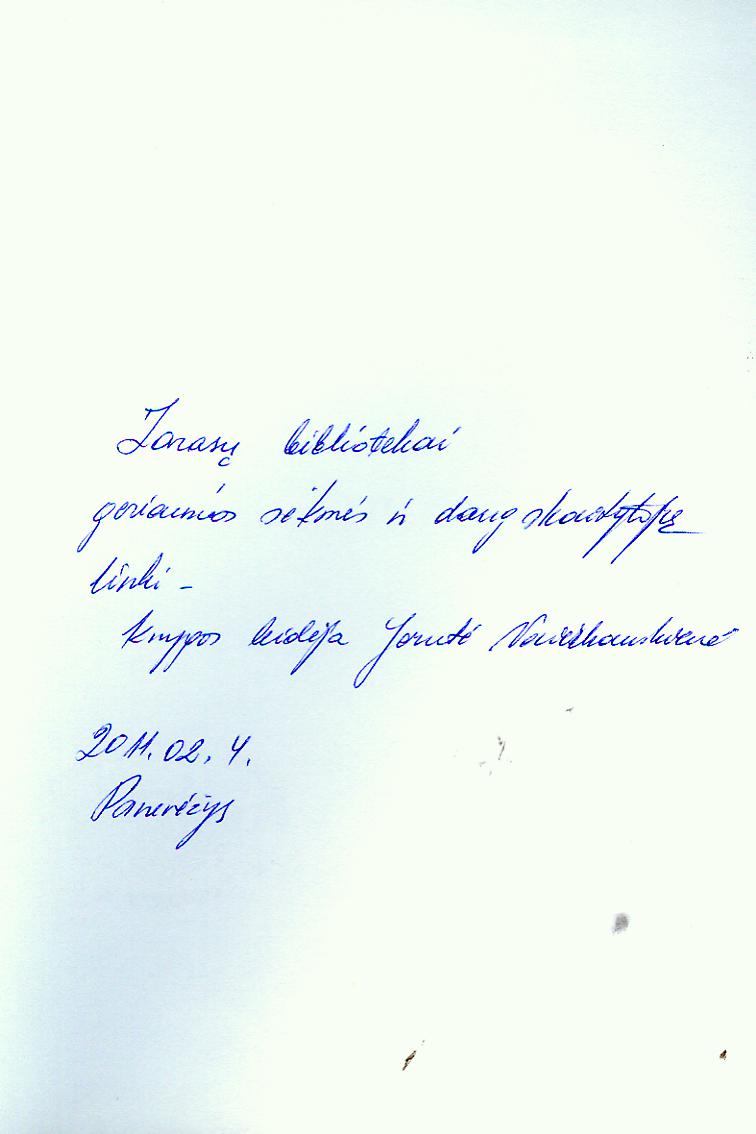 Zarasų bibliotekai
geriausios sėkmės ir daug skaitytojų
linki -
knygos leidėja
2011.02.4.
Panevėžys